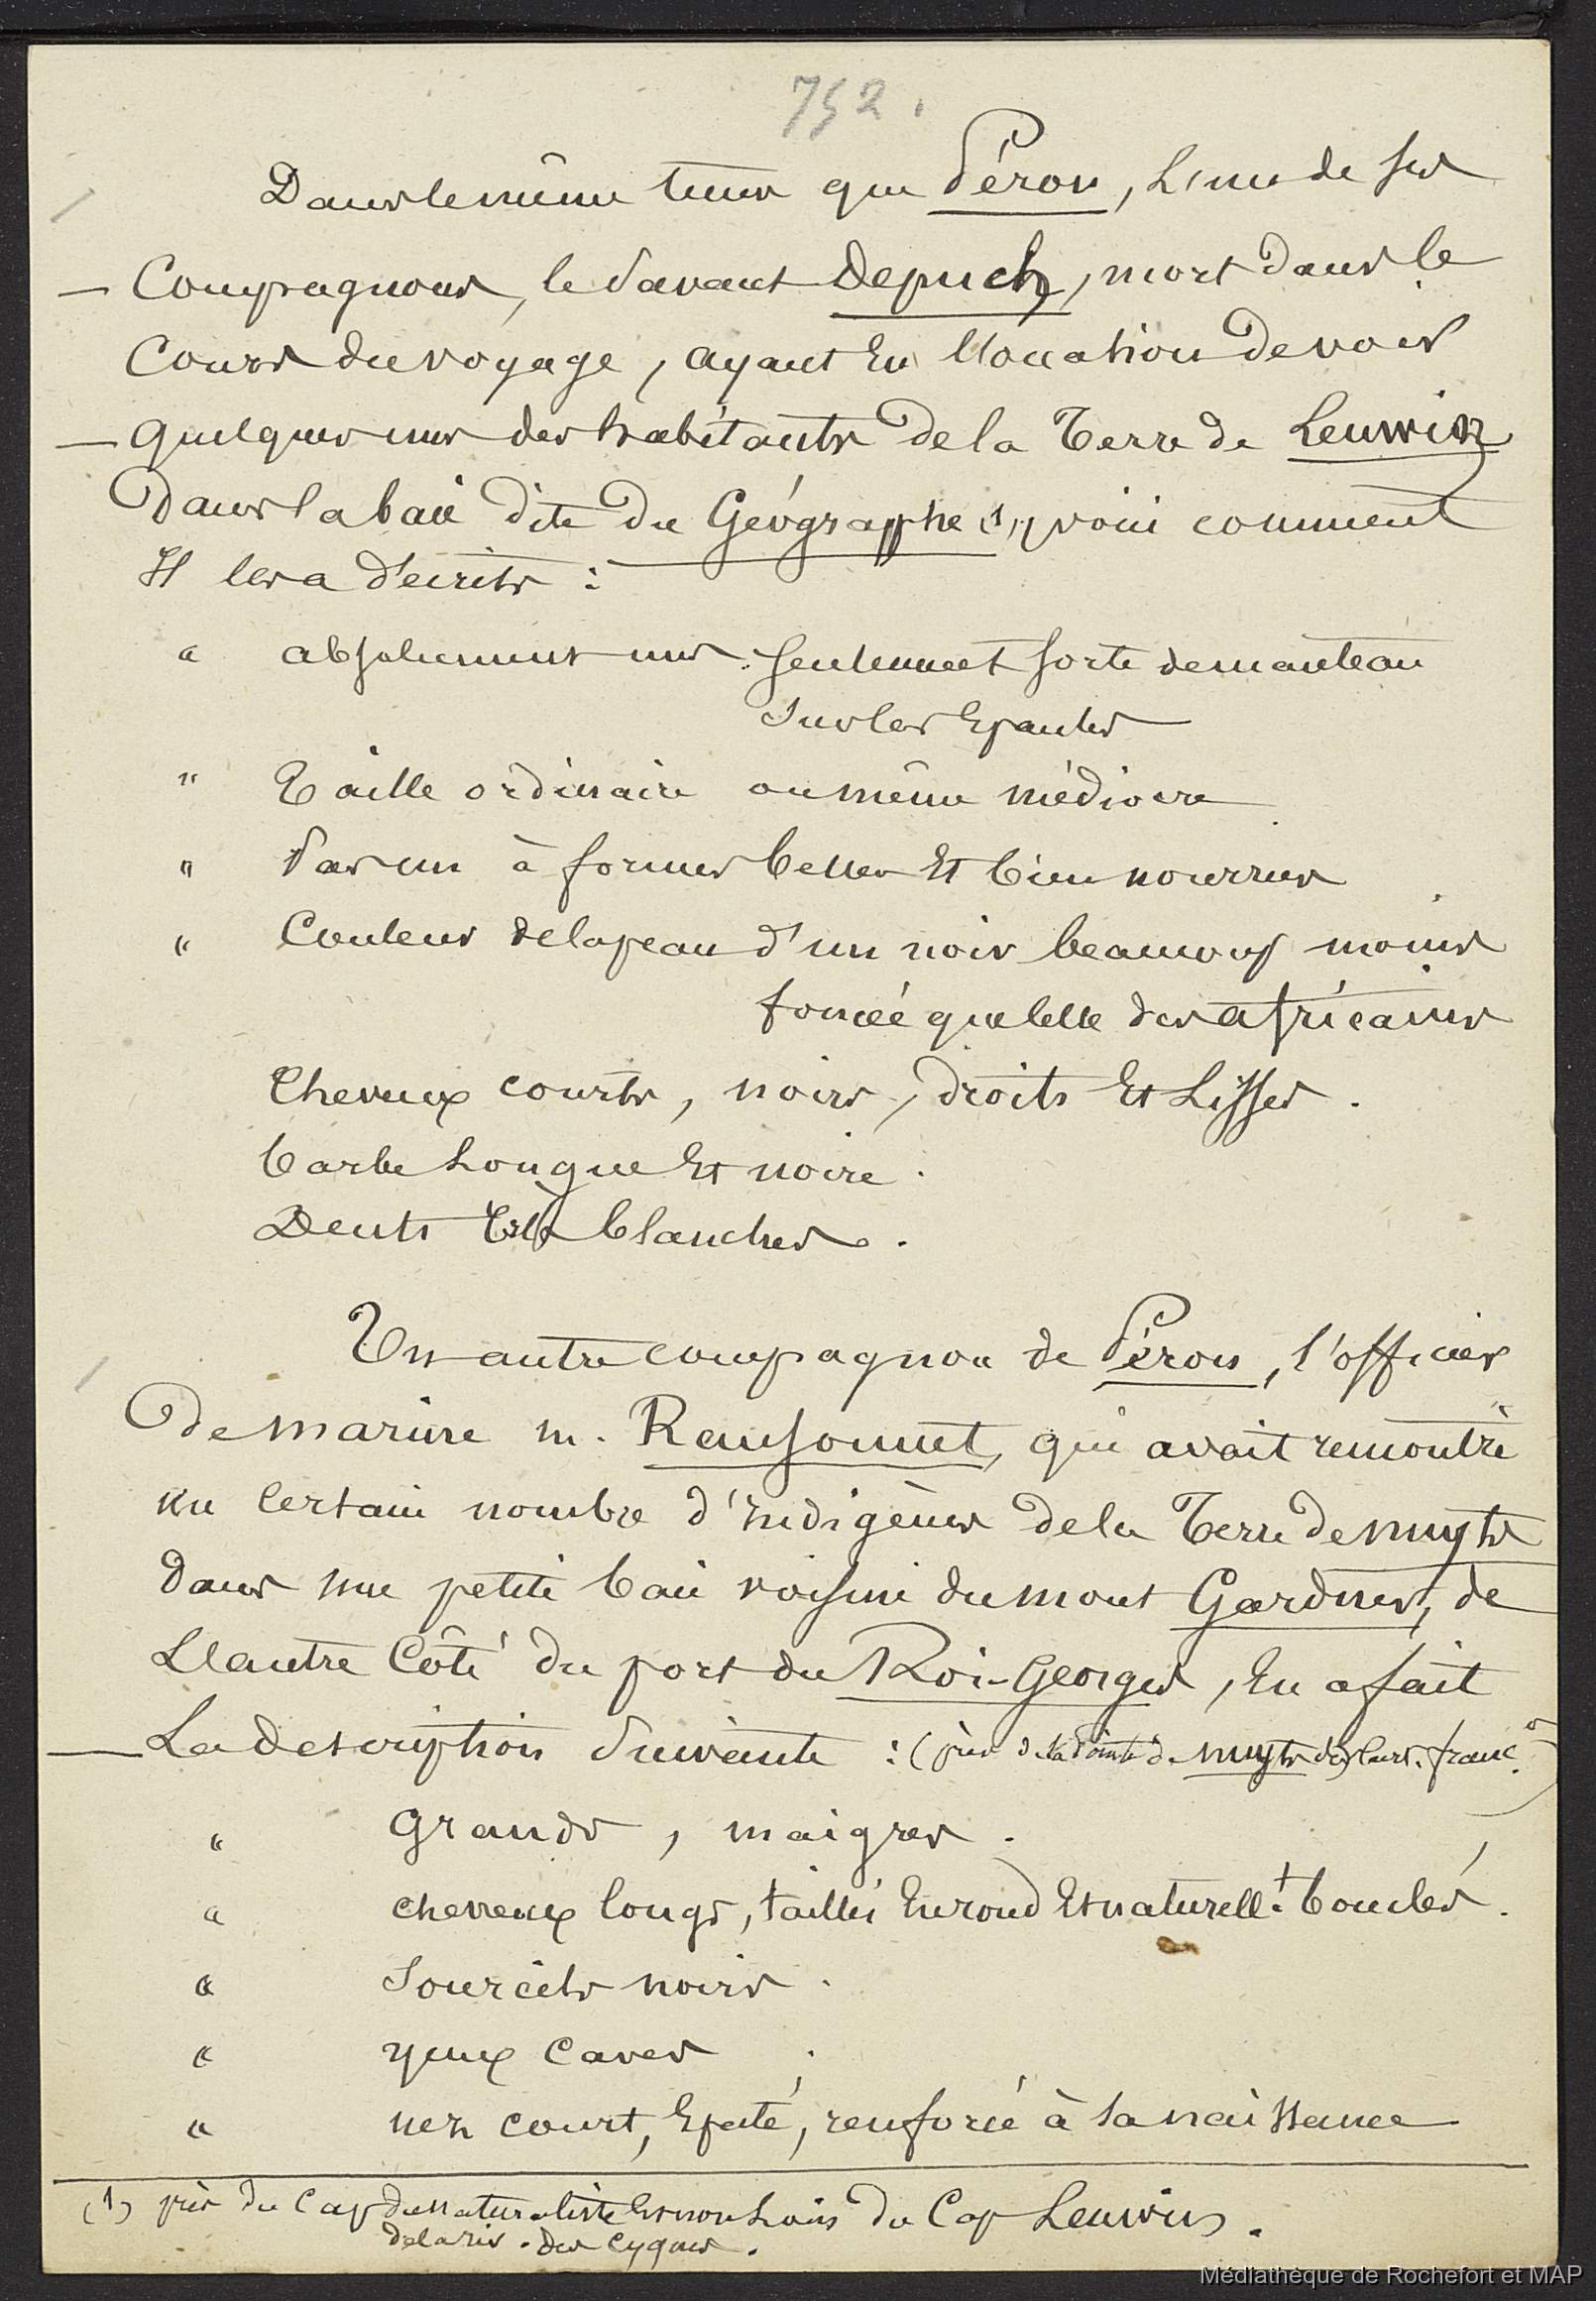 752.
Dans le même tems que Péron, L'un de ses
Compagnons, le Savant Depuch, mort dans le
Cours du voyage, ayant Eu l'occasion de voir
quelques uns des habitants de la Terre de Leuwin
Dans la baie dite du Géographe (1), voici comment
Il les a décrits :
" absolument nus : seulement sorte de manteau
Sur les Epaules
" Taille ordinaire ou même médiocre
" Pas un à formes belles Et bien nourries
" Couleur de la peau d'un noir beaucoup moins
foncée que celle des africains
Cheveux courts, noirs, droits Et Lisses.
barbe Longue Et noire.
Dents Très blanches.
Un autre compagnon de Péron, l'officier
De marine m. Ransonnet, qui avait rencontré
un certain nombre d'Indigènes de la Terre de nuyts
dans une petite baie voisine du mont Gardner, de
L'autre Côté du port du Roi-Georges, En a fait
La description Suivante : (près de la Pointe de nuyts des cart. franç.es)
" Grands, maigres.
" cheveux longs, taillés En rond Et naturell.t bouclés.
" Sourcils noirs.
" yeux Caves
" nez court, Epaté, renforcé à sa naissance
(1) près du Cap du naturaliste Et non loin du Cap Leuwin.
de la riv. des Cygnes.
Médiathèque de Rochefort et MAP